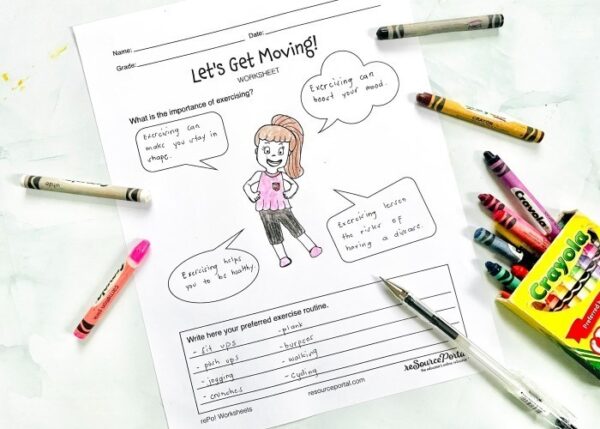 Name:
Date:
Grade:
Let's Get Moving!
WORKSHEET
What is the importance of exercising?
Exercising can
make you stay in
shape.
Exercising can
boost your mood.
Exercising helps
you to be healthy.
Exercising lessen
the risks of
having a disease.
Write here your preferred exercise routine.
- sit ups
- push ups
- jogging
- crunches
- plank
- burpees
- walking
- cycling
resourceportal.com
rePo! Worksheets
reSourcePortal
white
Crayola
Crayola
Crayola
Preferred